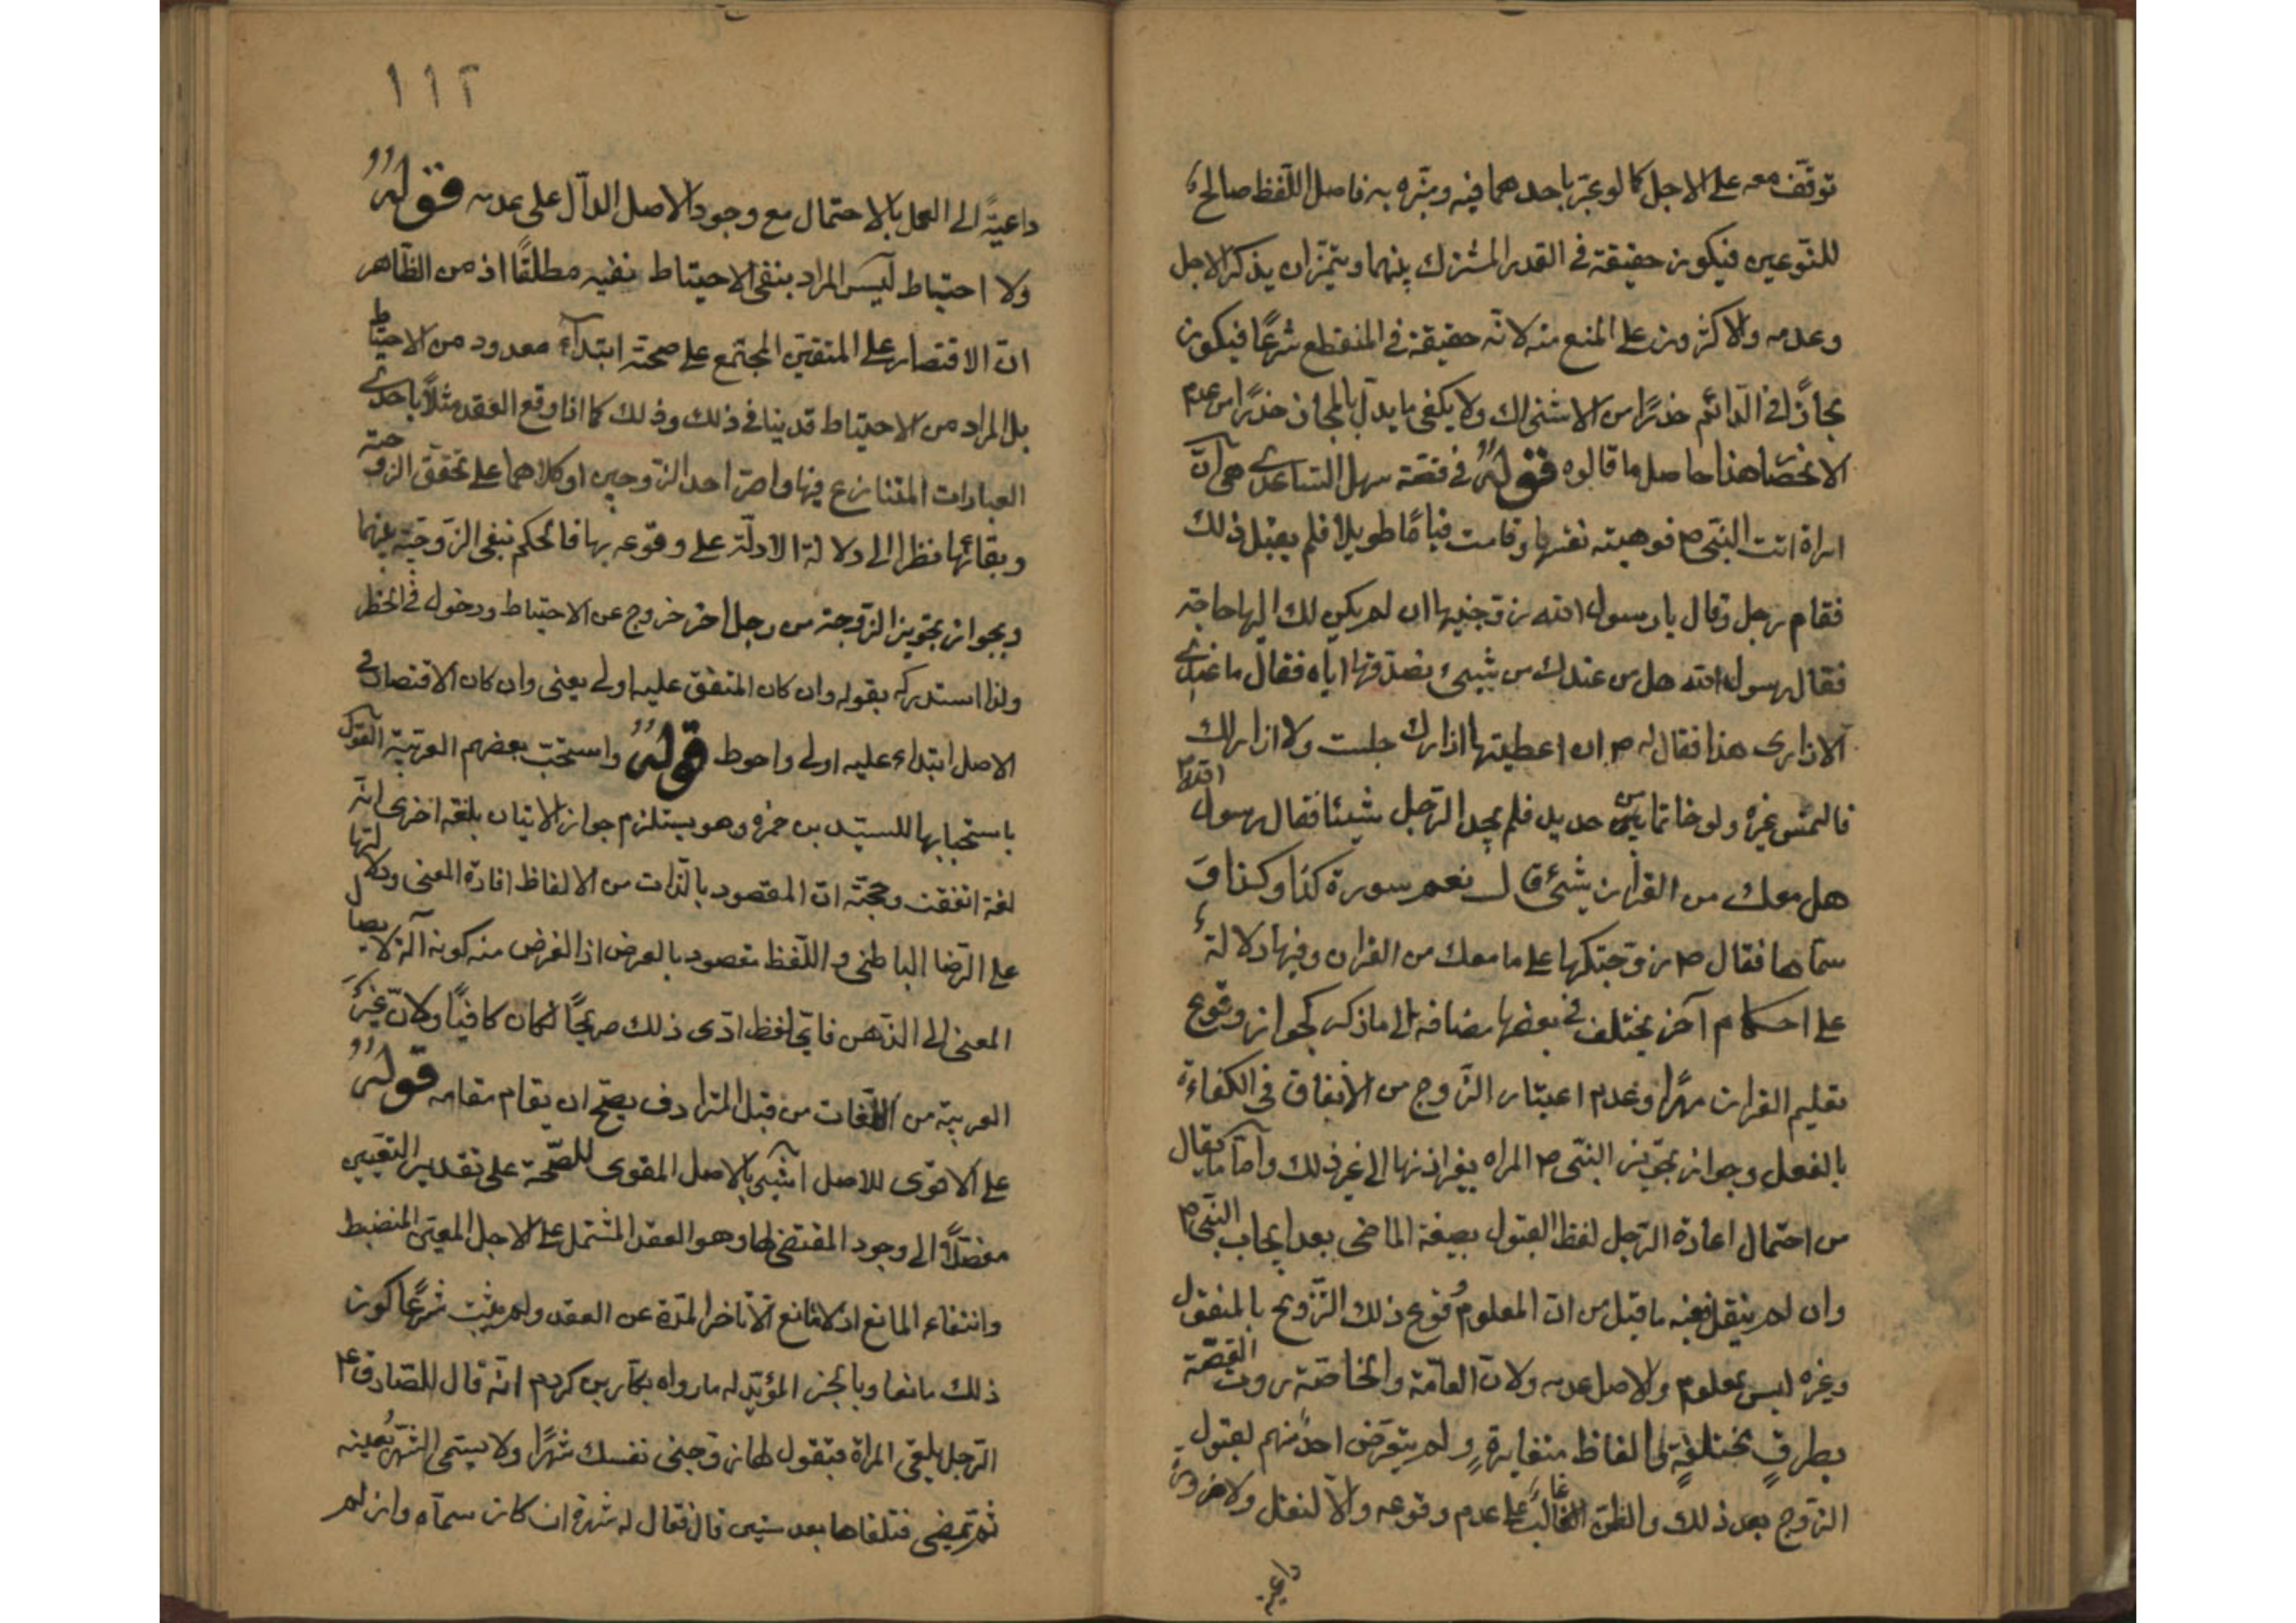 توقّف معه على الاجل كما لو عبّر باحدهما فيه وميّزه به فاصل اللّفظ صالح
للنّوعين فيكون حقيقة في القدر المشترك بينهما ويتميّزان بذكر الاجل
وعدمه والاكثرون على المنع منه لانّه حقيقة في المنقطع شرعًا فيكون
مجازًا في الدّائم حذرًا من الاشتراك ولا يكفى ما يدلّ بالمجاز حذرًا من عدم
الانحصار هذا حاصل ما قالوه قوله في قصّة سهل الساعدى هى انّ
امراة اتت النبّى ص فوهبته نفسها وقامت قيامًا طويلا فلم يقبل ذلك
فقام رجل وقال يا رسول الله زوّجنيها ان لم يكن لك اليها حاجة
فقال رسول الله هل من عندك من شىء تصدّقها ايّاه فقال ما عندى
الا ازارى هذا فقال له ص ان اعطيتها ازارك جلست ولا ازار لك
فالتمس غيره ولو خاتما من حديد فلم يجد الرّجل شيئا فقال رسول الله ص
هل معك من القران شئ قال نعم سورة كذا وكذا و
سمّاها فقال ص زوّجتكها على ما معك من القران وفيها دلالة
على احكام آخر يختلف في بعضها مضافة الى ما ذكر كجواز وقوع
تعليم القران مهرًا وعدم اعتبار الزّوج من الانفاق في الكفاءة
بالفعل وجواز تجويز النبّى ص المراة بغير اذنها الى غير ذلك وامّا ما يقال
من احتمال اعادة الرّجل لفظ القبول بصيغة الماضى بعد ايجاب النبّى ص
وان لم ينقل ففيه ما قبل من انّ المعلوم وقوع ذلك التّزويج بالمنقول
وغيره ليس بمعلوم والاصل عدمه ولانّ العامّة والخاصّة روت القصّة
بطرق مختلفة والفاظ متغايرة ولم يتعرّض احد منهم لقبول
الزّوج بعد ذلك والظنّ الغالب على عدم وقوعه والّا لنقل ولا ضرورة
داعية
١١٢
داعيةً الى العمل بالاحتمال مع وجود الاصل الدالّ على عدمه قوله
ولا احتياط ليس المراد بنفى الاحتياط نفيه مطلقًا اذ من الظّاهر
انّ الاقتصار على المتيقن المجتمع على صحته ابتداءً معدود من الاحتياط
بل المراد من الاحتياط قد ينافى ذلك وذلك كما اذا وقع العقد مثلًا باحدى
العبارات المتنازع فيها واصرّ احد الزّوجين او كلاهما على تحقّق الزوجية
وبقائها نظرا الى دلالة الادلّة على وقوعه بها فالحكم بنفى الزّوجيّة بينهما
وبجواز تجويز الزّوجة من رجل اخر خروج عن الاحتياط ودخول في الخطر
ولذا استدركه بقوله وان كان المتفق عليه اولى يعنى وان كان الاقتصار في
الاصل ابتداء عليه اولى واحوط قوله واستحبّ بعضهم العربيّة القول
باستحبابها للسيّد بن حمزه وهو يستلزم جواز الاتيان بلغة اخرى اية
لغة اتفقت وحجّته انّ المقصود بالذّات من الالفاظ افادة المعنى ودلالتها
على الرّضا الباطنى واللّفظ مقصود بالعرض اذ الغرض منه كونه آلة لايصال
المعنى الى الذّهن فاىّ لفظ ادّى ذلك صريحًا لكان كافيًا ولانّ غير
العربية من اللّغات من قبيل المترادف يصحّ ان يقام مقامه قوله
على الاقوى للاصل اشير بالاصل المقوى للصّحة على تقدير التعيين
مفصلًا الى وجود المقتضى لها وهو العقد المشتمل على الاجل المعيّن المنضبط
وانتفاء المانع اذ لا مانع الّا تاخر المدّة عن العقد ولم يثبت شرعًا كون
ذلك مانعا وبالخبر المؤيّد له ما رواه بكّار بن كردم انّه قال للصّادق ع
الرّجل يلقى المراة فيقول لها زوّجينى نفسك شهرًا ولا يسمّى الشّهر بعينه
ثم يمضى فتلقاها بعد سنين قال فقال له شهره ان كان سمّاه وان لم